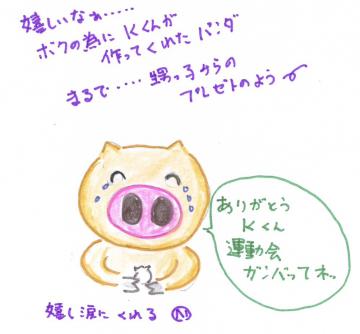 嬉しいなぁ‥‥‥
ボクの為に Kくんが
作ってくれた パンダ
まるで‥‥‥甥っ子からの
プレゼトのよう
ありがとう
Kくん
運動会
ガンバってネッ
嬉し涙に くれる Ⓝ